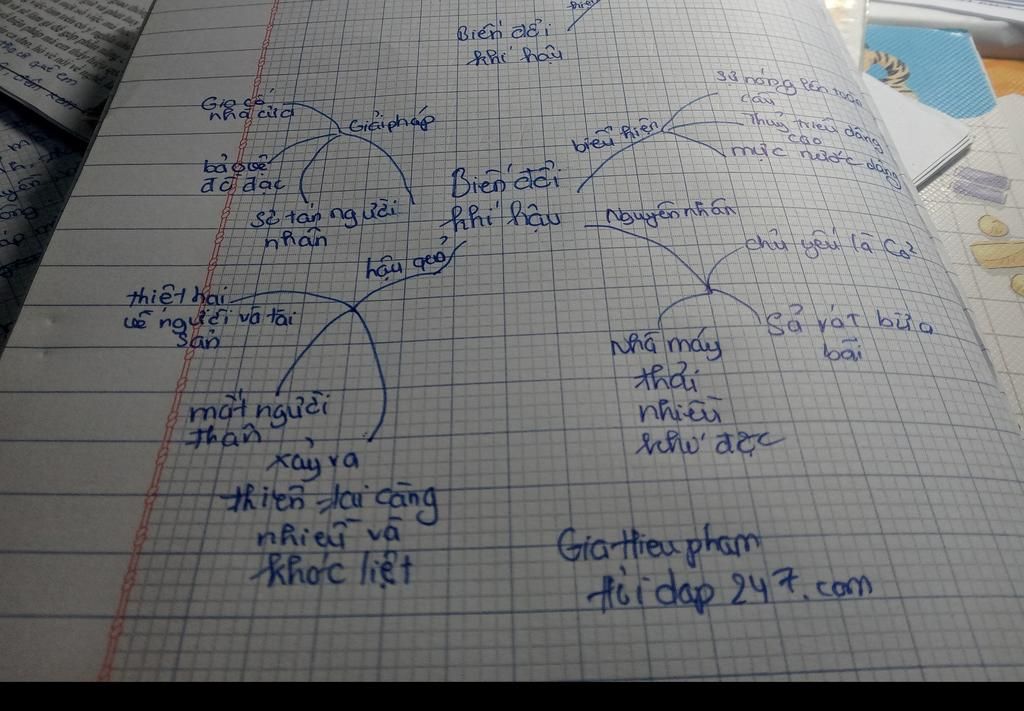 Biến đổi
khí hậu
Biến đổi
khí hậu
Giải pháp
Gia cố
nhà cửa
bảo vệ
đồ đạc
sơ tán người
nhân
biểu hiện
sự nóng lên toàn
cầu
Thuỷ triều dâng
cao
mực nước dâng
nguyên nhân
chủ yếu là Co²
Sả rát bừa
bãi
Nhà máy
thải
nhiều
khí độc
hậu quả
thiệt hại
về người và tài
sản
mất người
thân
xảy ra
thiên tai càng
nhiều và
khốc liệt
Giathieupham
Hỏi dap 247.com